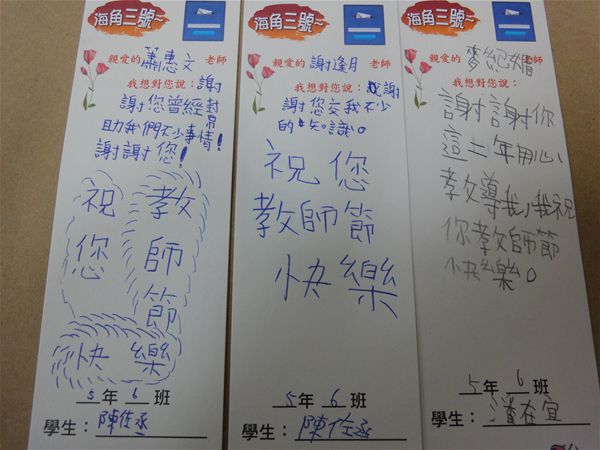 海角三號~
親愛的 蕭惠文 老師
我想對您說：謝
謝您曾經封常
助我們不少事情!
謝謝您!
祝您
教師節
快樂
5年 6 班
學生：陳佐丞
海角三號~
親愛的 謝逢月 老師
我想對您說：感謝
謝您交我不少
的知識。
祝您
教師節
快樂
5年 6 班
學生：陳佐丞
海角三號~
親愛的 老師
我想對您說：
謝謝你
這二年用心
教導我，我祝
你教師節
快樂。
5年 6 班
學生：潘在宜